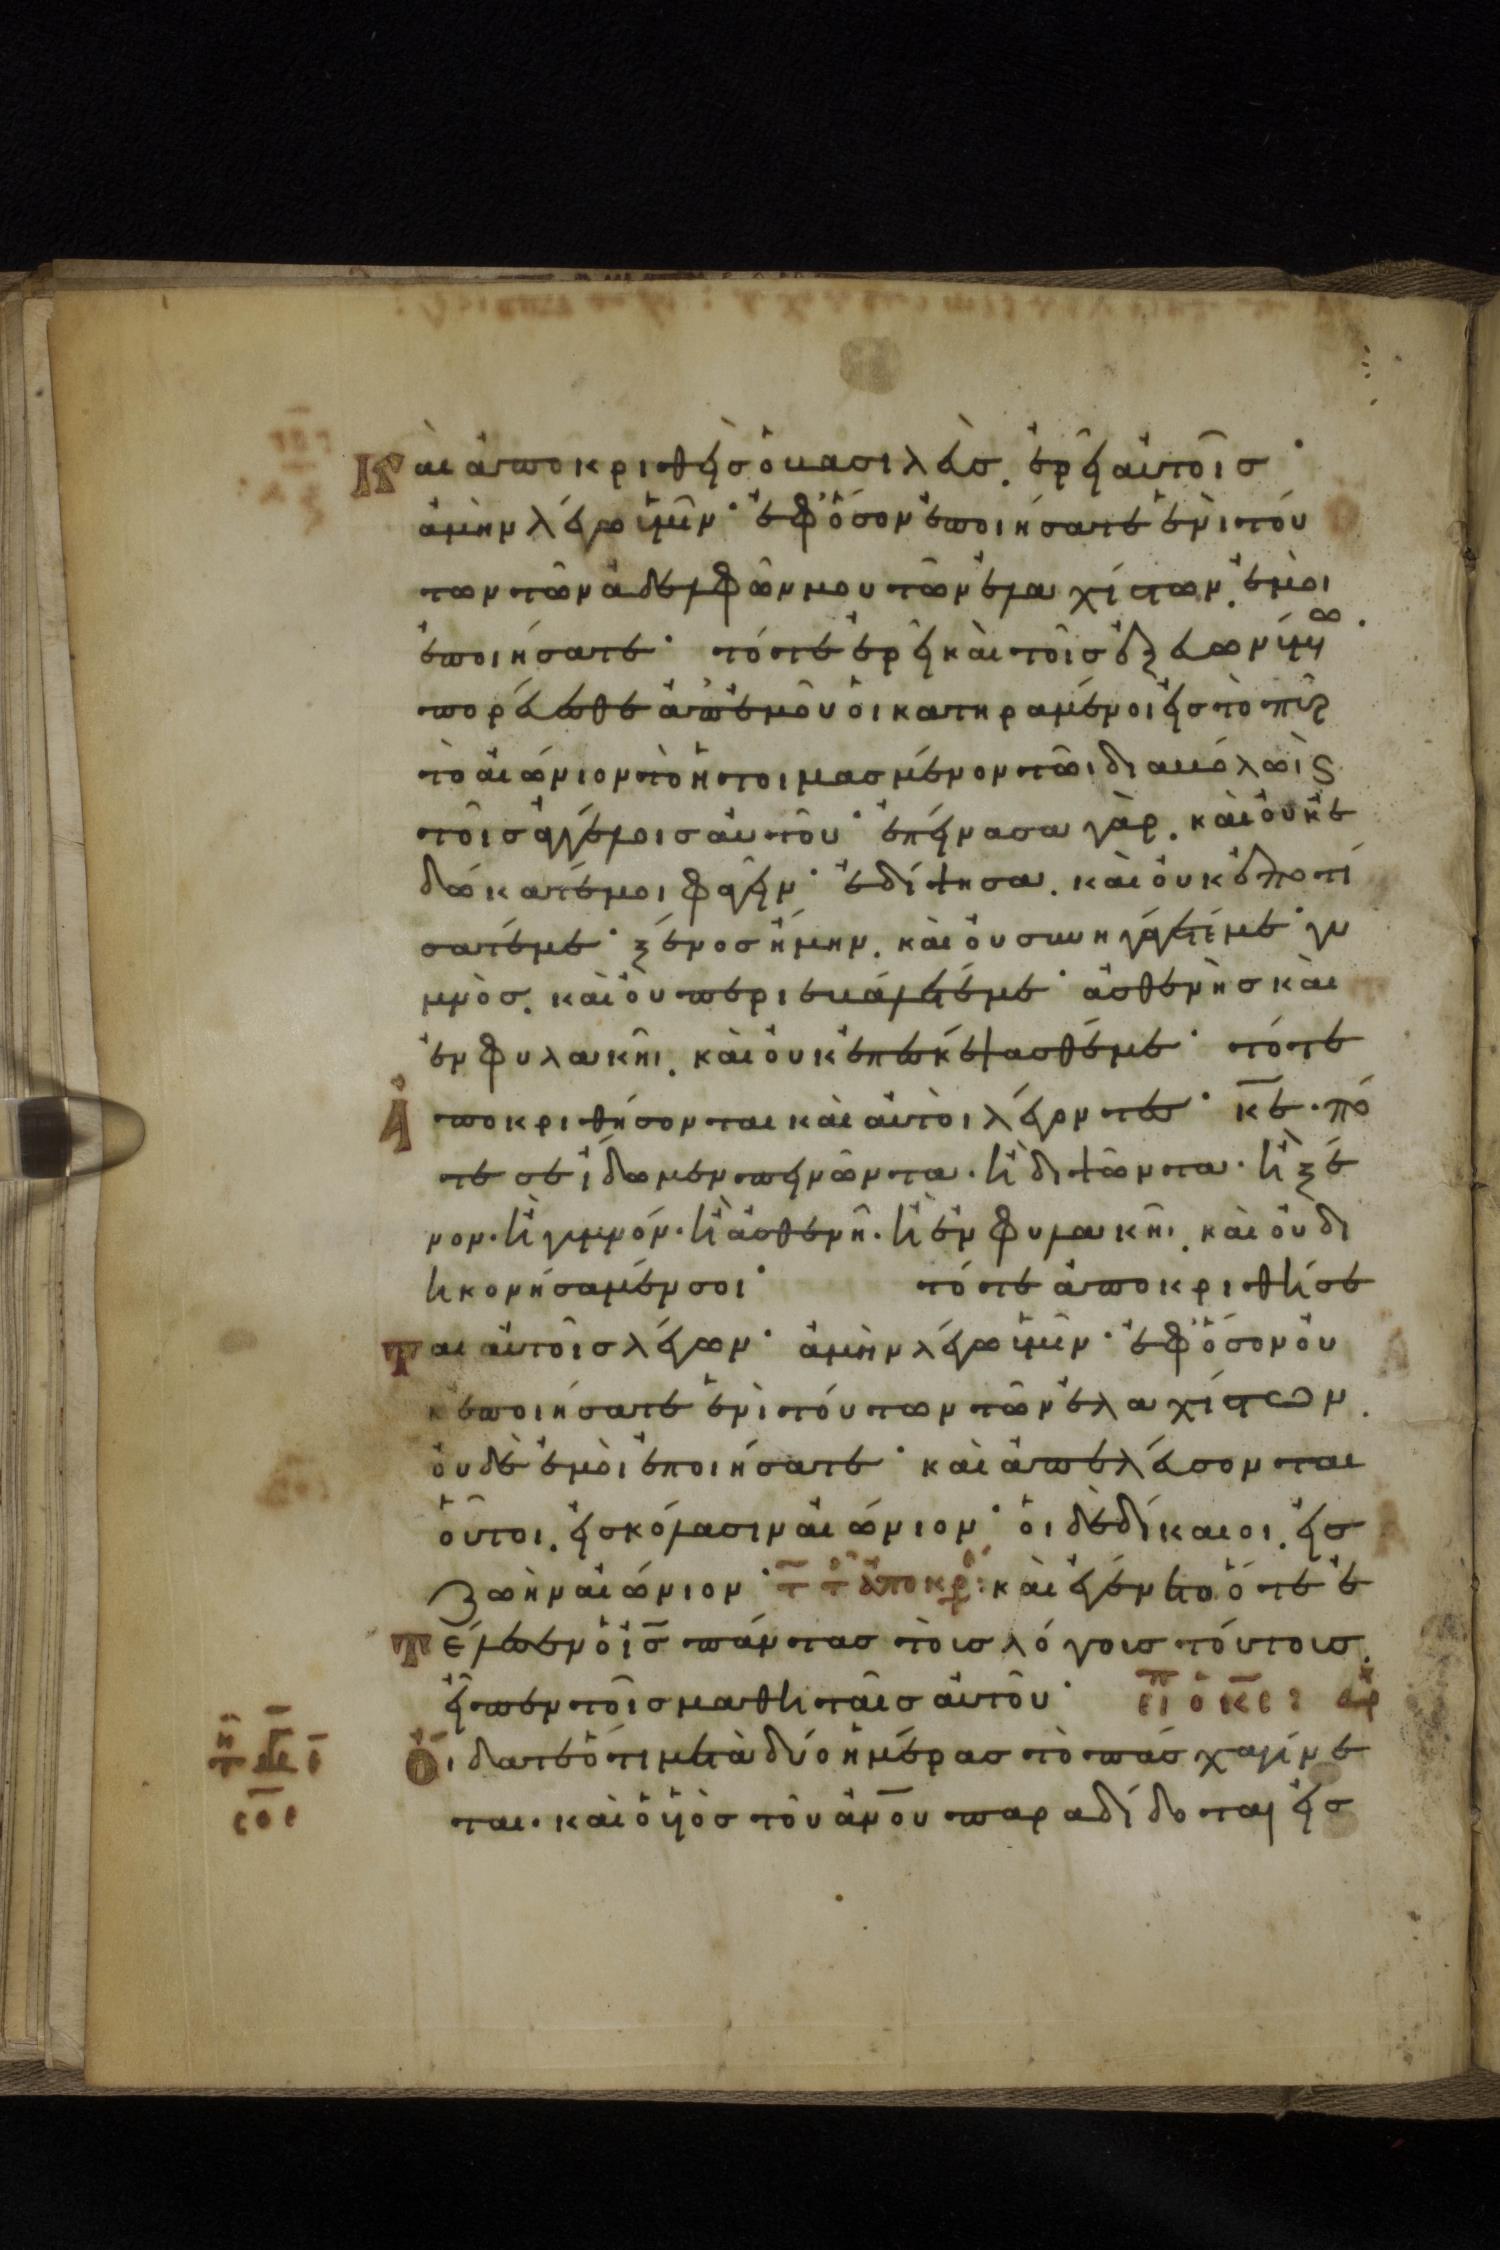 Καὶ ἀποκριθεὶς ὁ βασιλεὺς. ἐρεῖ αὐτοῖς·
ἀμὴν λέγω ὑμῖν· ἐφ' ὅσον ἐποιήσατε ἑνὶ τού
των τῶν ἀδελφῶν μου τῶν ἐλαχίστων. ἐμοὶ
ἐποιήσατε· τότε ἐρεῖ καὶ τοῖς ἐξ εὐωνύμω·
πορεύεσθε ἀπ' ἐμοῦ οἱ κατηραμένοι εἰς τὸ πῦρ
τὸ αἰώνιον τὸ ἡτοιμασμένον τῶι διαβόλωι ϛ
τοῖς ἀγγέλοις αὐτοῦ· ἐπείνασα γὰρ. καὶ οὐκ ἐ
δώκατέ μοι φαγεῖν· ἐδίψησα. καὶ οὐκ ἐποτί
σατέ με· ξένος ἤμην. καὶ οὐ συνηγάγετέ με· γυ
μνὸς. καὶ οὐ περιεβάλετέ με· ἀσθενὴς καὶ
ἐν φυλακῆι. καὶ οὐκ ἐπεσκέψασθέ με· τότε
Ἀποκριθήσονται καὶ αὐτοὶ λέγοντες· κε· πό
τε σε εἴδωμεν πεινῶντα· ἢ διψῶντα· ἢ ξέ
νον· ἢ γυμνόν· ἢ ἀσθενῆ· ἢ ἐν φυλακῆι. καὶ οὐ δι
ηκονήσαμέν σοι· τότε ἀποκριθήσε
Ται αὐτοῖς λέγων· ἀμὴν λέγω ὑμῖν· ἐφ' ὅσον οὐ
κ ἐποιήσατε ἑνὶ τούτων τῶν ἐλαχίστων.
οὐδὲ ἐμοὶ ἐποιήσατε· καὶ ἀπελεύσονται
οὗτοι. εἰς κόλασιν αἰώνιον· οἱ δὲ δίκαιοι. εἰς
ζωὴν αἰώνιον· καὶ ἐγένετο ὅτε ἐ
Τέλεσεν ὁ ἰς πάντας τοὺς λόγους τούτους.
εἶπεν τοῖς μαθηταῖς αὐτοῦ· εἶπ ὁ κς
Οἴδατε ὅτι μετὰ δύο ἡμέρας τὸ πάσχα γίνε
ται· καὶ ὁ υἱὸς τοῦ ἀνου παραδίδοται εἰς